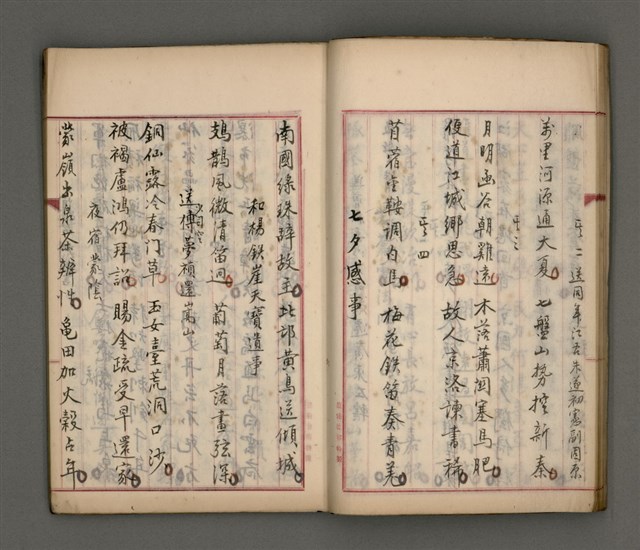 其二 送同年江右朱還初憲副固原
萬里河源通大夏 七盤山勢控新秦
其三
月明函谷朝雞遠 木落蕭關塞馬肥
便道江城鄉思急 故人京洛諫書稀
其四
苜蓿金鞍調白馬 梅花鉄笛奏青羌
七夕感事
南國綠珠辭故主 北邙黃鳥送傾城
和楊鉄崖天寶遺事
鳷鵲風微情笛迥 葡萄月落畫弦深
送傅夢禎還嵩山
銅仙露冷春門草 玉女臺荒洞口沙
被褐盧鴻仍拜詔 賜金疏受早還家
夜宿蒙陰
蒙嶺出泉茶辨性 龜田加火穀占年